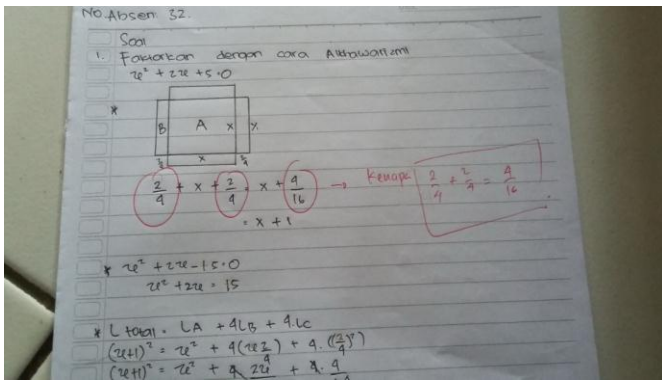 No. Absen: 32.
Soal
1. Faktorkan dengan cara Alkhawarizmi
x² + 2x + 5 = 0
*
B A x x
2/4 x 2/4
2/4 + x + 2/4 = x + 4/16 → Kenapa 2/4 + 2/4 = 4/16
= x + 1
* x² + 2x - 15 = 0
x² + 2x = 15
* L total = LA + 4LB + 4.LC
(x+1)² = x² + 4(x 2/4) + 4. ((2/4)²)
(x+1)² = x² + 4 2x/4 + 4. 4